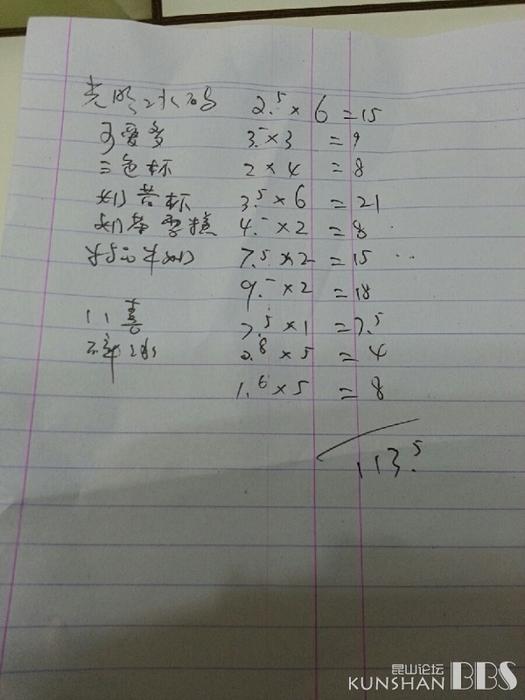 光明冰砖 2.5 × 6 = 15
可爱多 3.- × 3 = 9
三色杯 2 × 4 = 8
奶昔杯 3.5 × 6 = 21
雪糕 4.- × 2 = 8
7.5 × 2 = 15
9.- × 2 = 18
八喜 7.5 × 1 = 7.5
0.8 × 5 = 4
1.6 × 5 = 8
113.5
昆山论坛
KUNSHAN BBS